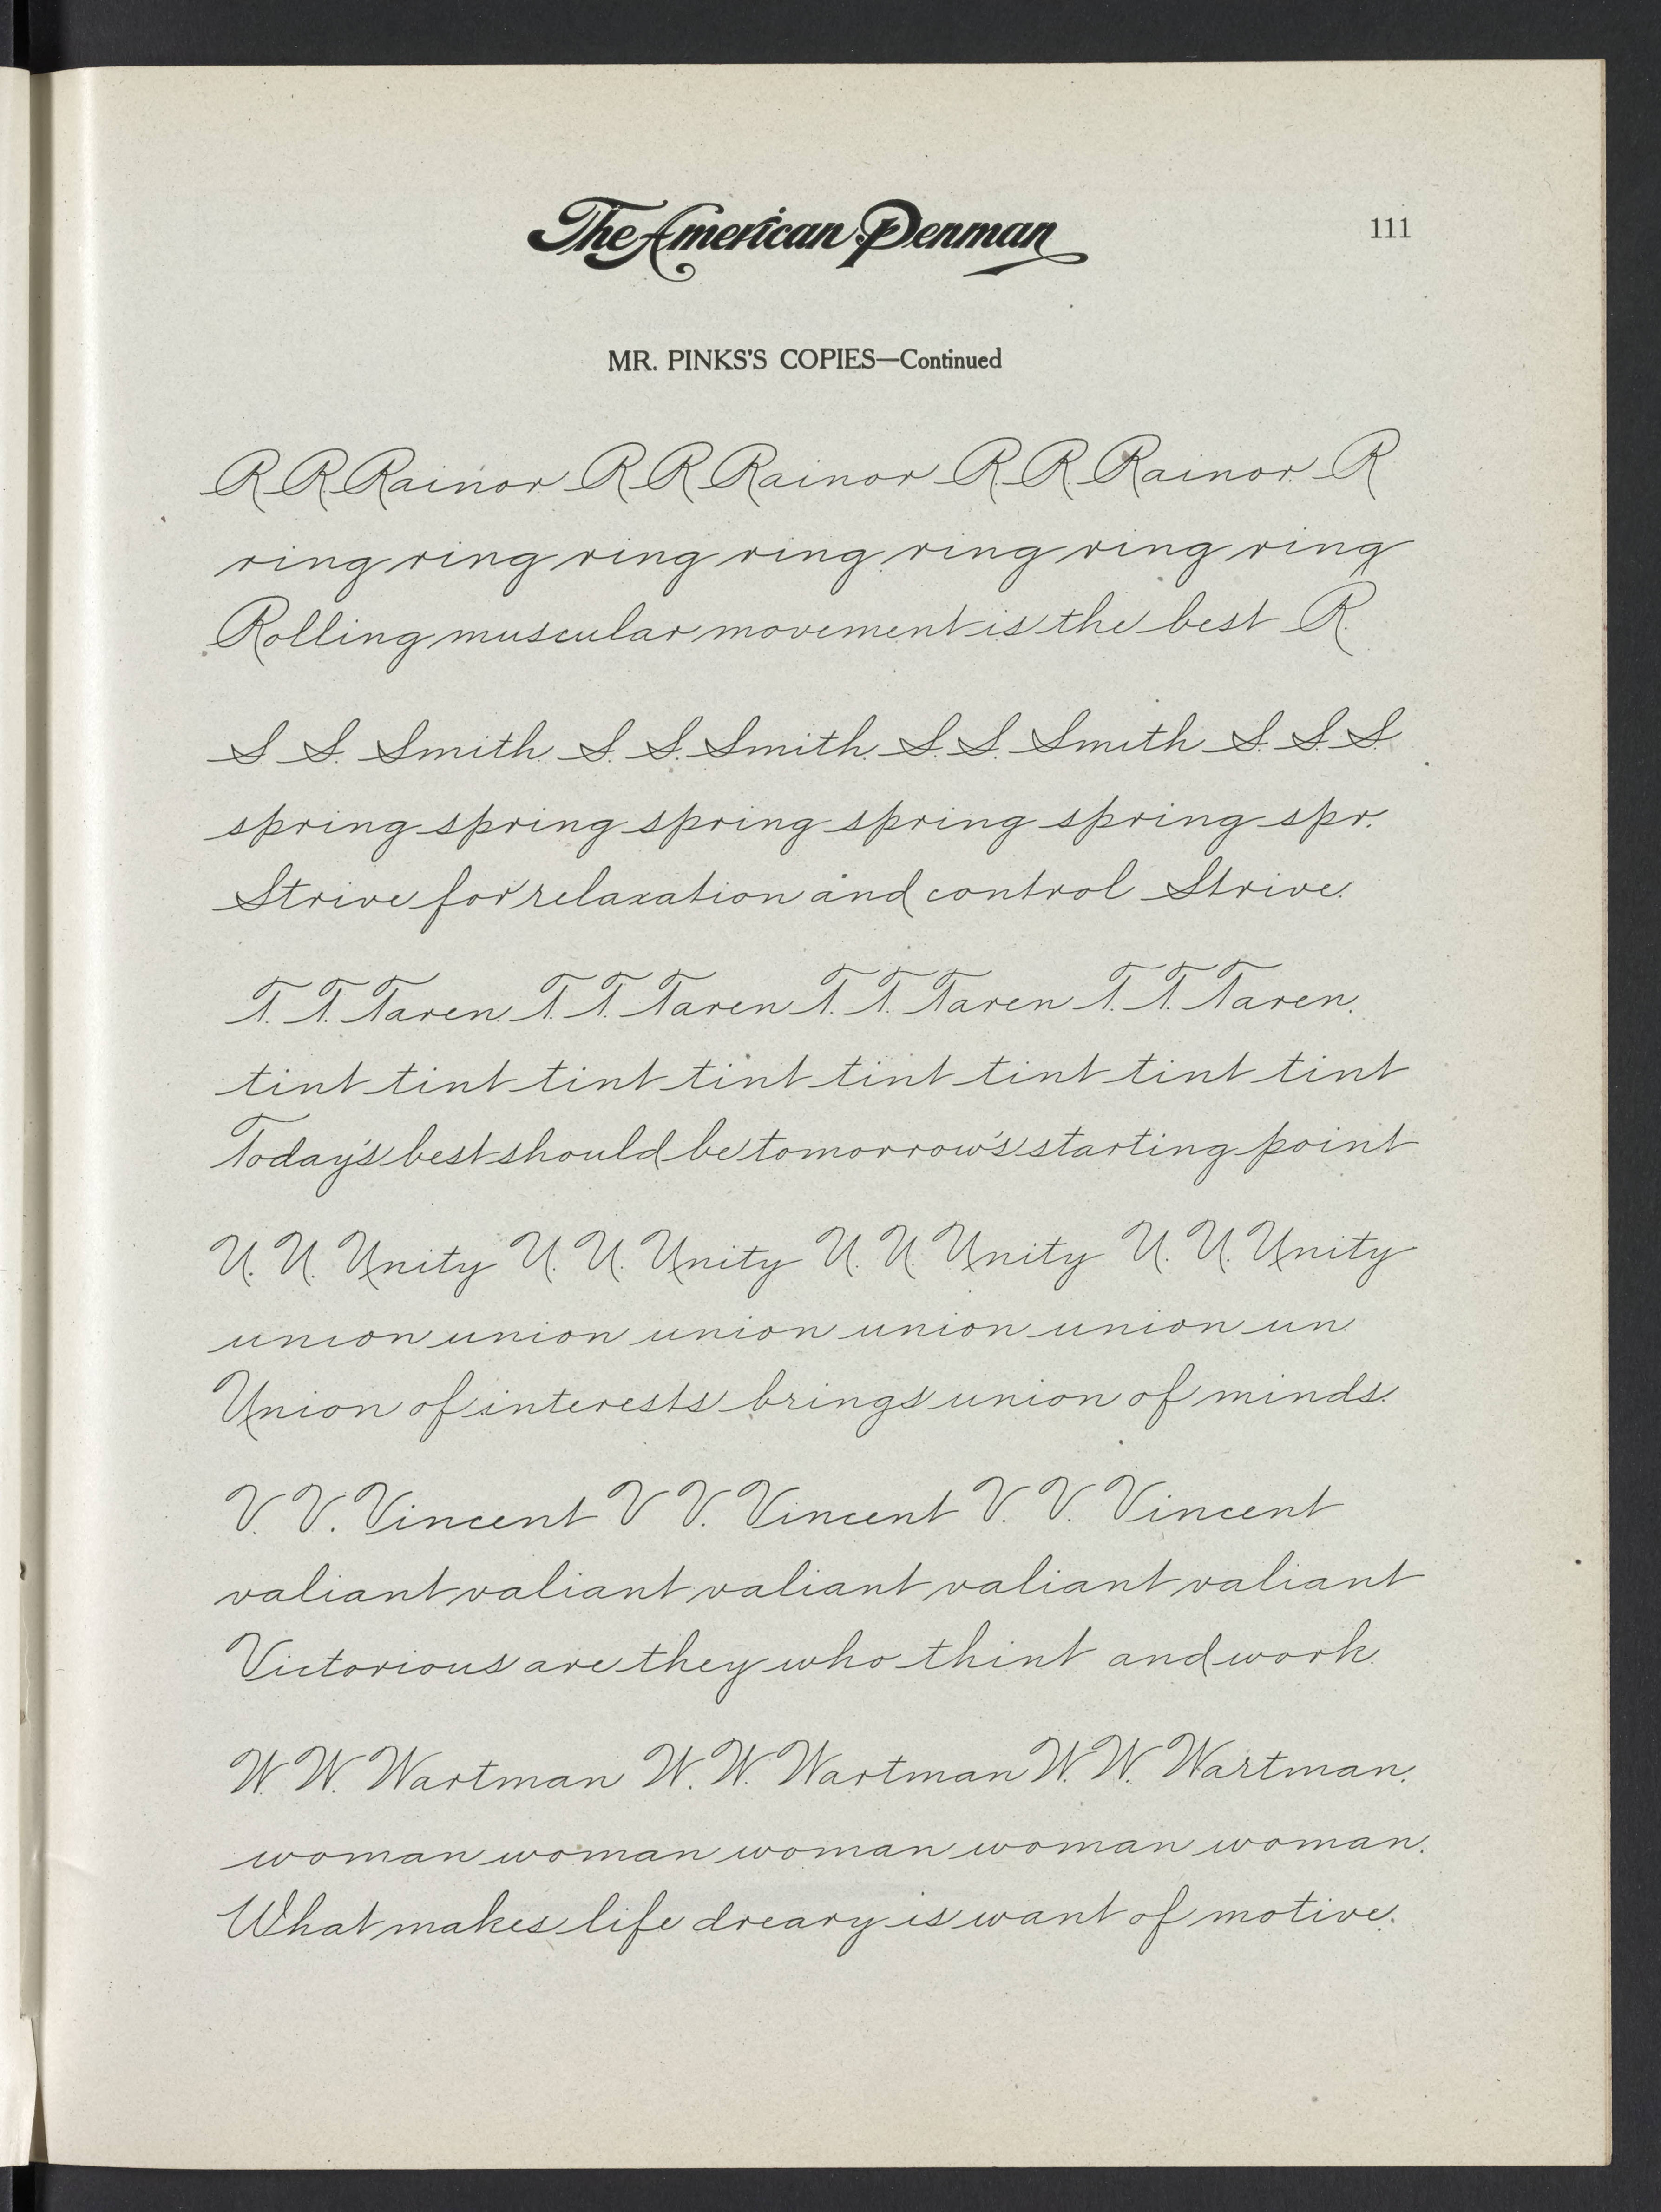 The American Penman
111
MR. PINKS'S COPIES—Continued
R R Rainor R R Rainor R. R Rainor. R
ring ring ring ring ring ring ring
Rolling muscular movement is the best R.
S S. Smith. S. S. Smith. S. S. Smith S. S. S.
spring spring spring spring spring spr.
Strive for relaxation and control Strive.
T. T. Taren. T. T. Taren T. T. Taren T. T. Taren.
tint tint tint tint tint tint tint tint
Today's best should be tomorrow's starting point
U. U. Unity U. U. Unity U. U. Unity U. U. Unity
union union union union union un.
Union of interests brings union of minds.
V. V. Vincent V V. Vincent V. V. Vincent
valiant valiant valiant valiant valiant
Victorious are they who thint and work.
W. W. Wartman W. W. Wartman W. W. Wartman.
woman woman woman woman woman.
What makes life dreary is want of motive.